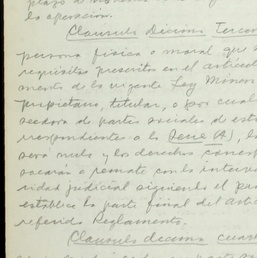 la oposición.
Clausula Decima Tercera
persona física o moral que
requisitos prescritos en el
mento de la vigente Ley Minera
propietario, titular, o por cual
seedora de partes sociales de est
rrespondiente a la Serie (A), l
sera nulo y los derechos
sacaran a remate con la interve
ridad judicial siguiendo el
establece la parte final del Arti
referido Reglamento.
Clausula decima cuart